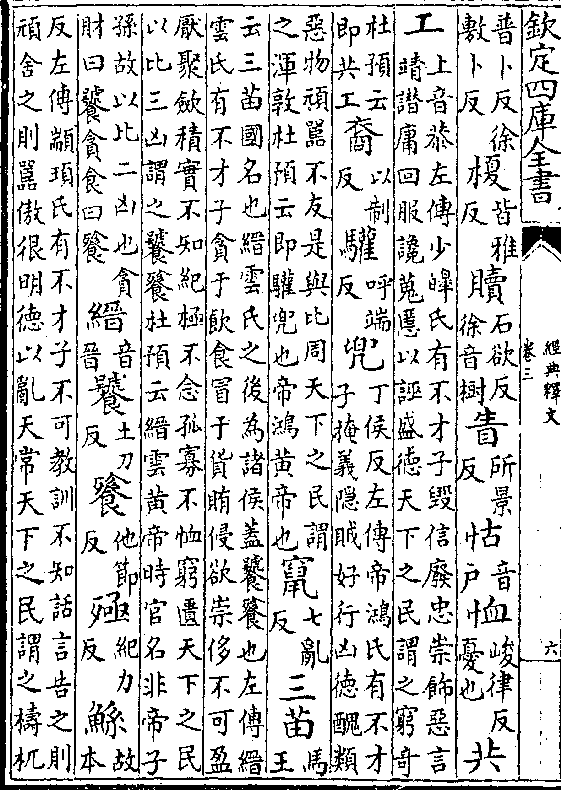 欽定四庫全書
經典釋文
卷三
六
普卜反徐敷卜反榎皆雅反贖石欲反徐音樹眚所景反怙音戶恤峻律反憂也共
工上音恭左傳少皥氏有不才子毀信廢忠崇飾惡言靖譖庸回服讒蒐慝以誣盛德天下之民謂之窮奇
杜預云即共工裔以制反驩呼端反兜丁侯反左傳帝鴻氏有不才子掩義隱賊好行凶德醜類
惡物頑嚚不友是與比周天下之民謂之渾敦杜預云即驩兜也帝鴻黄帝也竄七亂反三苗馬王
云三苗國名也縉雲氏之後為諸侯蓋饕餮也左傳縉雲氏有不才子貪于飲食冒于貨賄侵欲崇侈不可盈
厭聚斂積實不知紀極不念孤寡不恤窮匱天下之民以比三凶謂之饕餮杜預云縉雲黄帝時官名非帝子
孫故以比二凶也貪財曰饕貪食曰餮縉音晉饕土刀反餮他節反殛紀力反鯀故本
反左傳顓頊氏有不才子不可教訓不知話言告之則頑舍之則嚚傲很明德以亂天常天下之民謂之檮杌